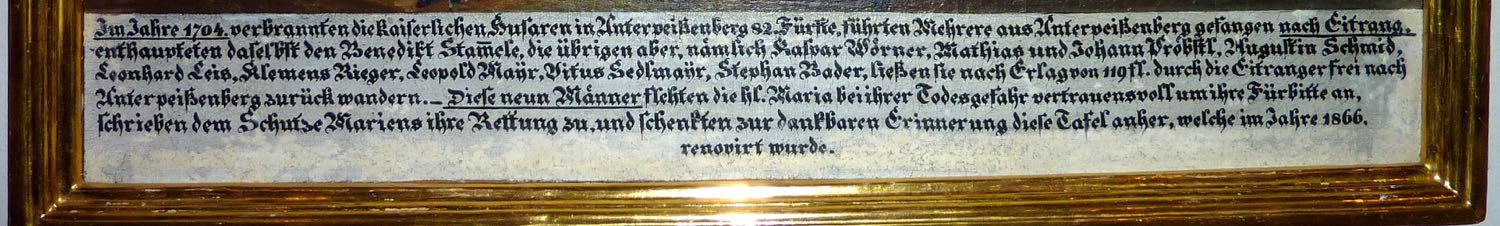 Im Jahre 1704. verbrannten die Kaiserlichen Husaren in Unterpeißenberg 82. Fürste, führten Mehrere aus Unterpeißenberg gefangen nach Eitrang.
enthaupteten daselbst den Benedikt Stam̅ele, die übrigen aber, nämlich Kaspar Wörner, Mathias und Johann Pröbstl, Augustin Schmid,
Leonhard Leis, Klemens Rieger, Leopold Maÿr, Vitus Sedlmaÿr, Stephan Bader, ließen sie nach Erlag von 119 fl. durch die Eitranger frei nach
Unterpeißenberg zurück wandern._ Diese neun Männer flehten die hl. Maria bei ihrer Todesgefahr vertrauensvoll um ihre Fürbitte an,
schrieben dem Schutze Mariens ihre Rettung zu, und schenkten zur dankbaren Erinnerung diese Tafel anher, welche im Jahre 1866.
renovirt wurde.